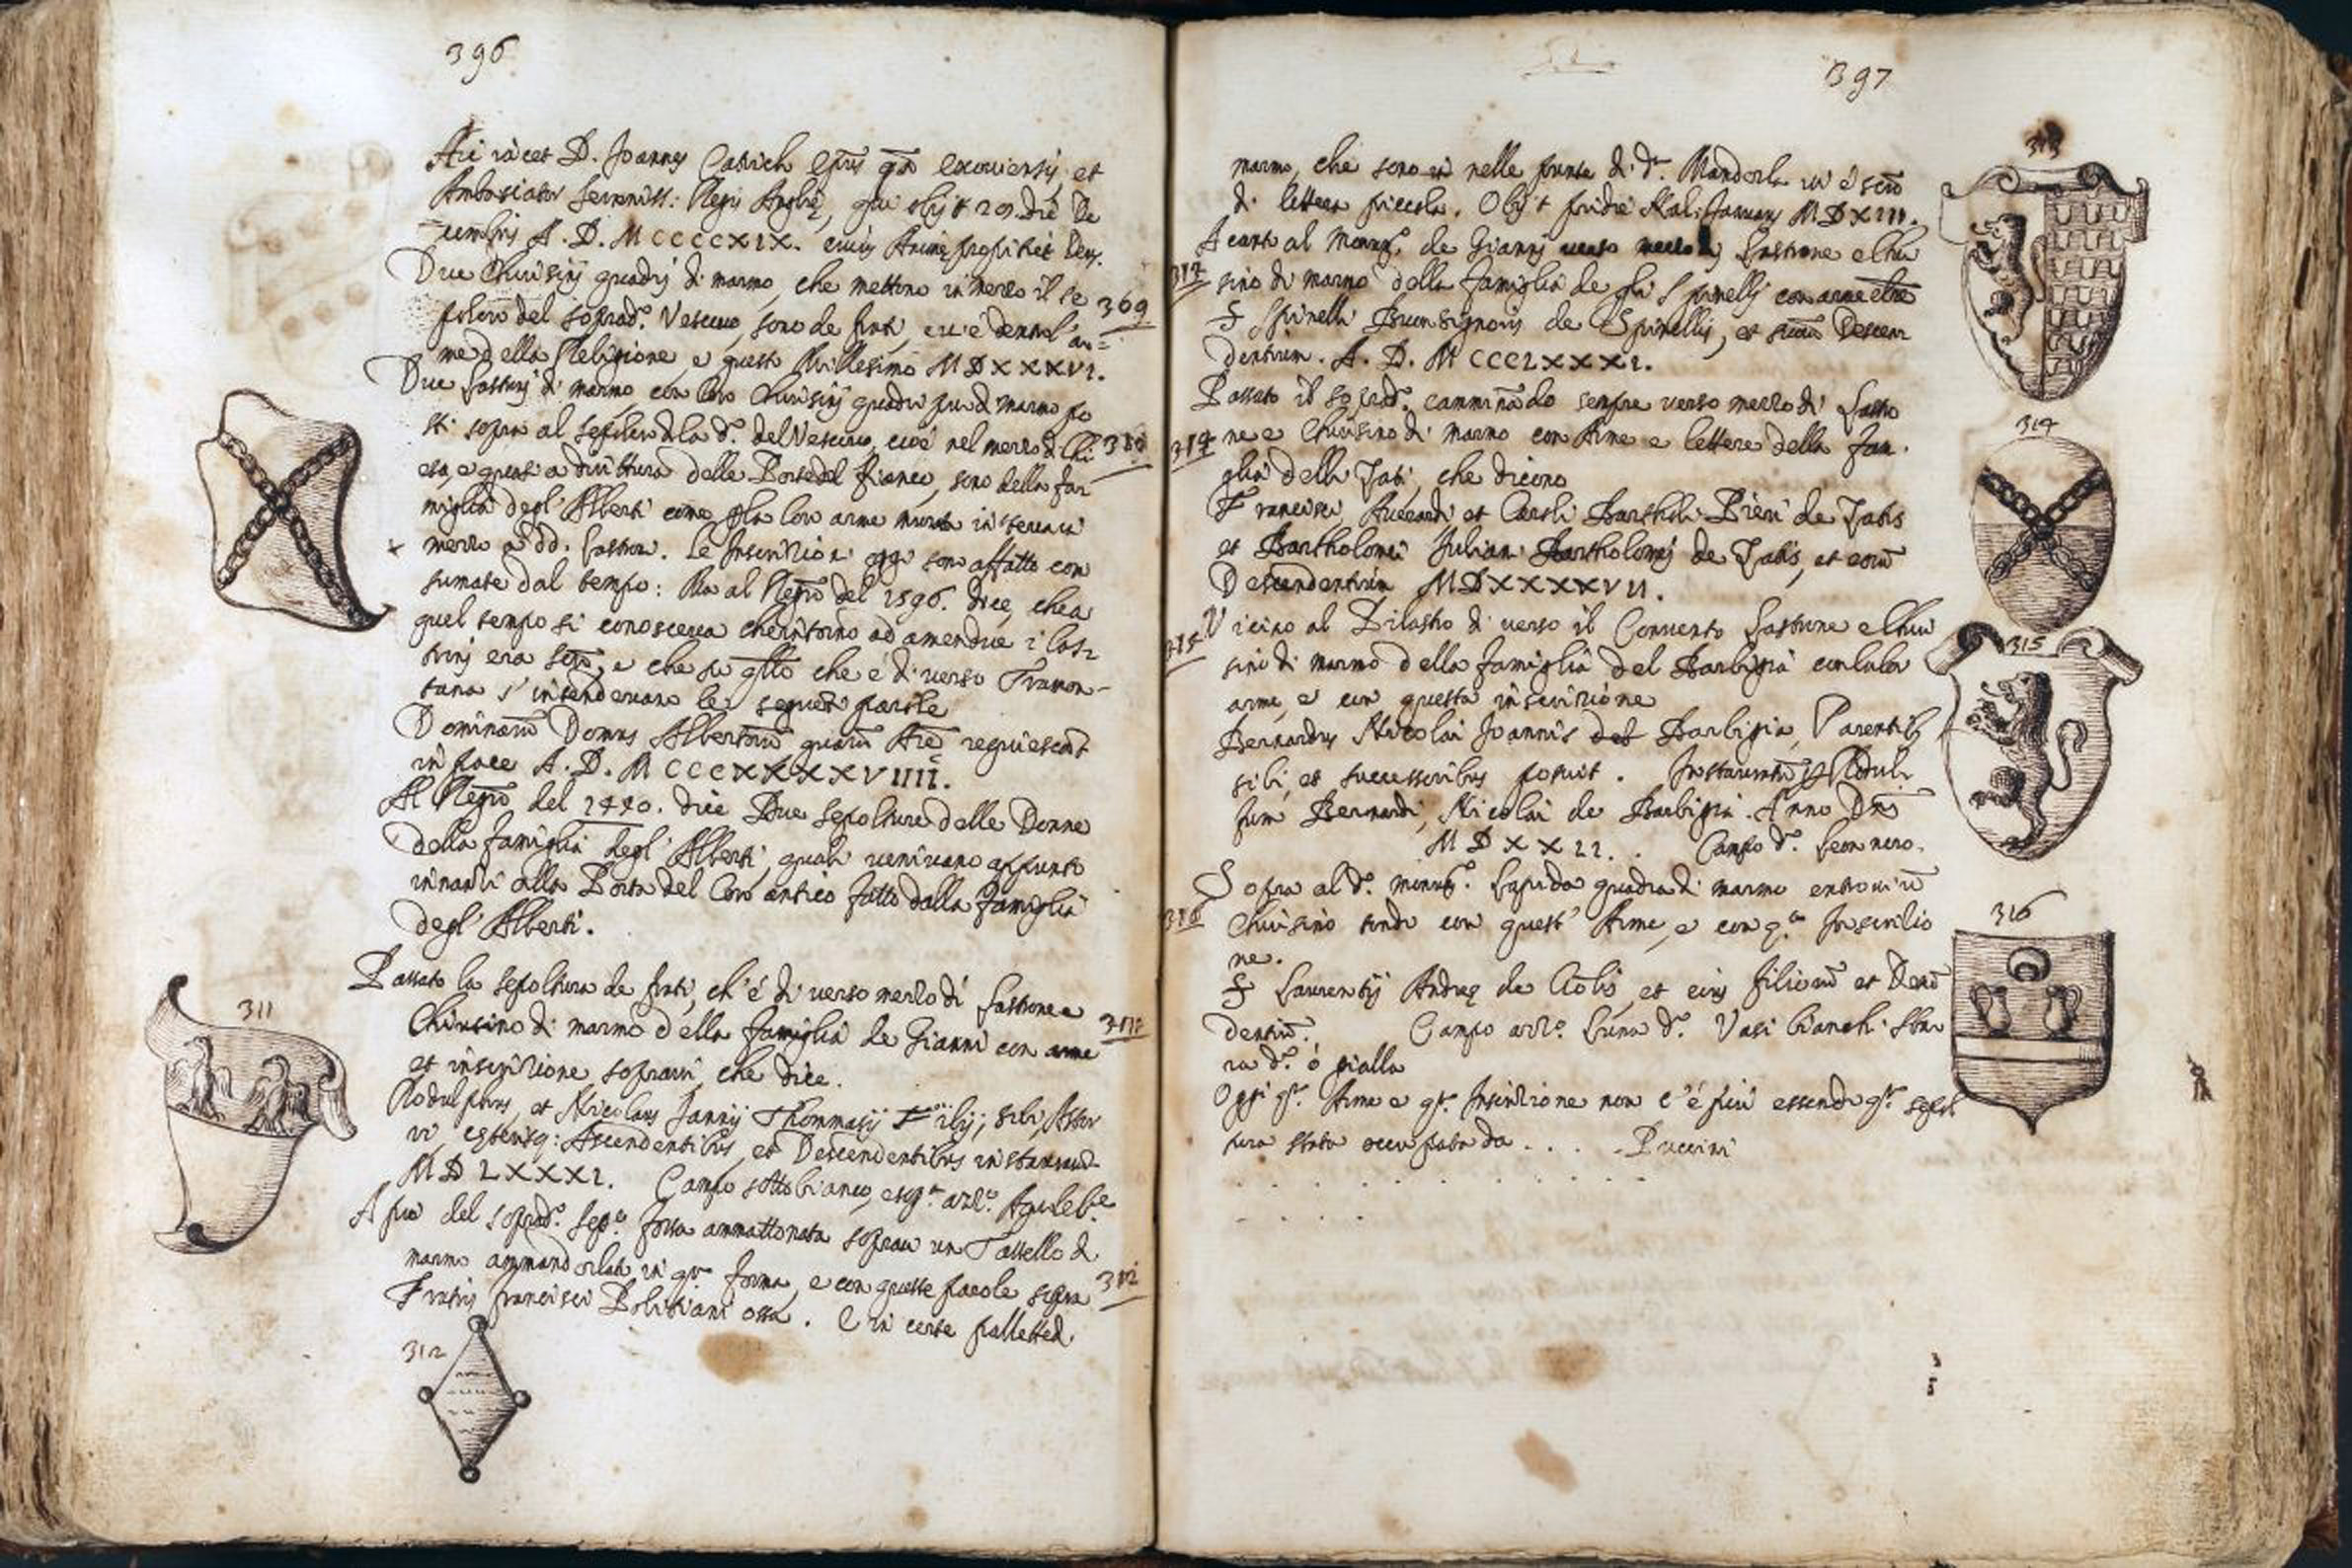 396
Hic iacet D. Joannes Catrich Ep̃us q̃m Exoniensis, et
Ambasiator Serenniss: Regis Anglię, qui obijt 20. die De
cembris A. D. MCCCCXIX. cuius Animę propitiet Deus.
Due Chiusinj quadrj di marmo, che mettono in mezzo il se
369
polcro del soprad.º Vescouo, sono de frati, eui è dentro l'ar=
me della Religione, e questo Millesimo MDXXXVI.
Due lastronj di marmo con loro Chiusinj quadri pur di marmo po
sti sopra al sepolcro d.º del Vescouo, cioè nel mezzo di Chi
310
esa, e quasi a dirittura delle Porte del fianco, sono della fa
miglia degl'Alberti come p̱ la loro arme murata in terra in
mezzo a dd. lastroni. Le Inscrizioni oggi sono affatto con
sumate dal tempo: Ma al Reg̃ro del 1596. dice, che a
quel tempo si conosceua che intorno ad amendue i last
troni era scto, e che su q̃llo che è di verso Tramon-
tana s'intendeuano le seguenti parole
Dominarũ Domus Albertorũ quarũ Aīę requiescãt
in pace A. D. MCCCXXXXVIIII.
Al Reg̃ro del 1440. dice Due sepolture delle Donne
della famiglia degl'Alberti, quali veniuano appunto
innanzi alla Porta del Coro antico fatto dalla famiglia
degl'Alberti.
Passato la sepoltura de frati, ch'é di verso mezzo dí lastrone e
311
Chiusino di marmo della famiglia de Gianni con arme
311
et inscrizione soprauj che dice.
Rodulphus, et Nicolaus Jannij Thommasij Filij, sibi, 
 Ascendentibus, et Descendentibus instaurand
MDLXXXI. Campo sotto bianco, e sop.ª azz.º Aquile b.e
A piè del soprad.º sep.º fossa ammattonata soprau un Tassello di
marmo ammandorlato in q.ta forma, e con queste parole sopra
312
Fratris Francisci Politiani ossa. E in certe pallotted
312
397
marmo, che sono in nelle punte di d.ª Mandorla ui è scto
di lettera piccola. Obijt pridie Kal: Januarij MDXIII.
313
Acanto al Monum.º de Giannj verso mezzo lastrone e chiu
sino di marmo della famiglia de gli Spinellj con arme e lr̃e
S Spinelli Buonsignoris de Spinellis, et suor̃ Descen
dentium. A. D. MCCCLXXXI.
Passato il soprad.º camminãdo sempre verso mezzo dí lastro
314
ne e Chiusino di marmo con Arme e lettere della fam.
glia della Tosi, che dicono
Francisci, et Caroli Bartholi Pieri de Tosis
et Bartholomei Juliani Bartholomej de Tosis, et eorũ
Descendentium MDXXXXVII.
315
Vicino al Pilastro di verso il Conuento lastrone e chiu
315
sino di marmo della famiglia del Barbigia con la lor
arme, e con questa inscrizione
Bernardus Nicolai Joannis del Barbigia, Parentib;
sibi, et successoribus posuit. Instauratũ p̱ Rodul
fum Bernardi, Nicolai de Barbigia. Anno Dñi
MDXXII. Campo d.º Leon nero.
Sopra al d.º monum.º lapida quadra di marmo entroui ũ
316
316
Chiusino tondo con quest'Arme, e con q.ta Inscrizio
ne.
S Laurentij Andreę de et eius filiorũ et Descẽ
dentiũ. Campo azz.º Luna d.º Vasi bianchi Sbar
ra d.º ó gialla
Oggi q.ta Arme e q.ta Inscrizione non c'é piú essendo q.ta sepol
tura stata occupata da . . . . Puccini